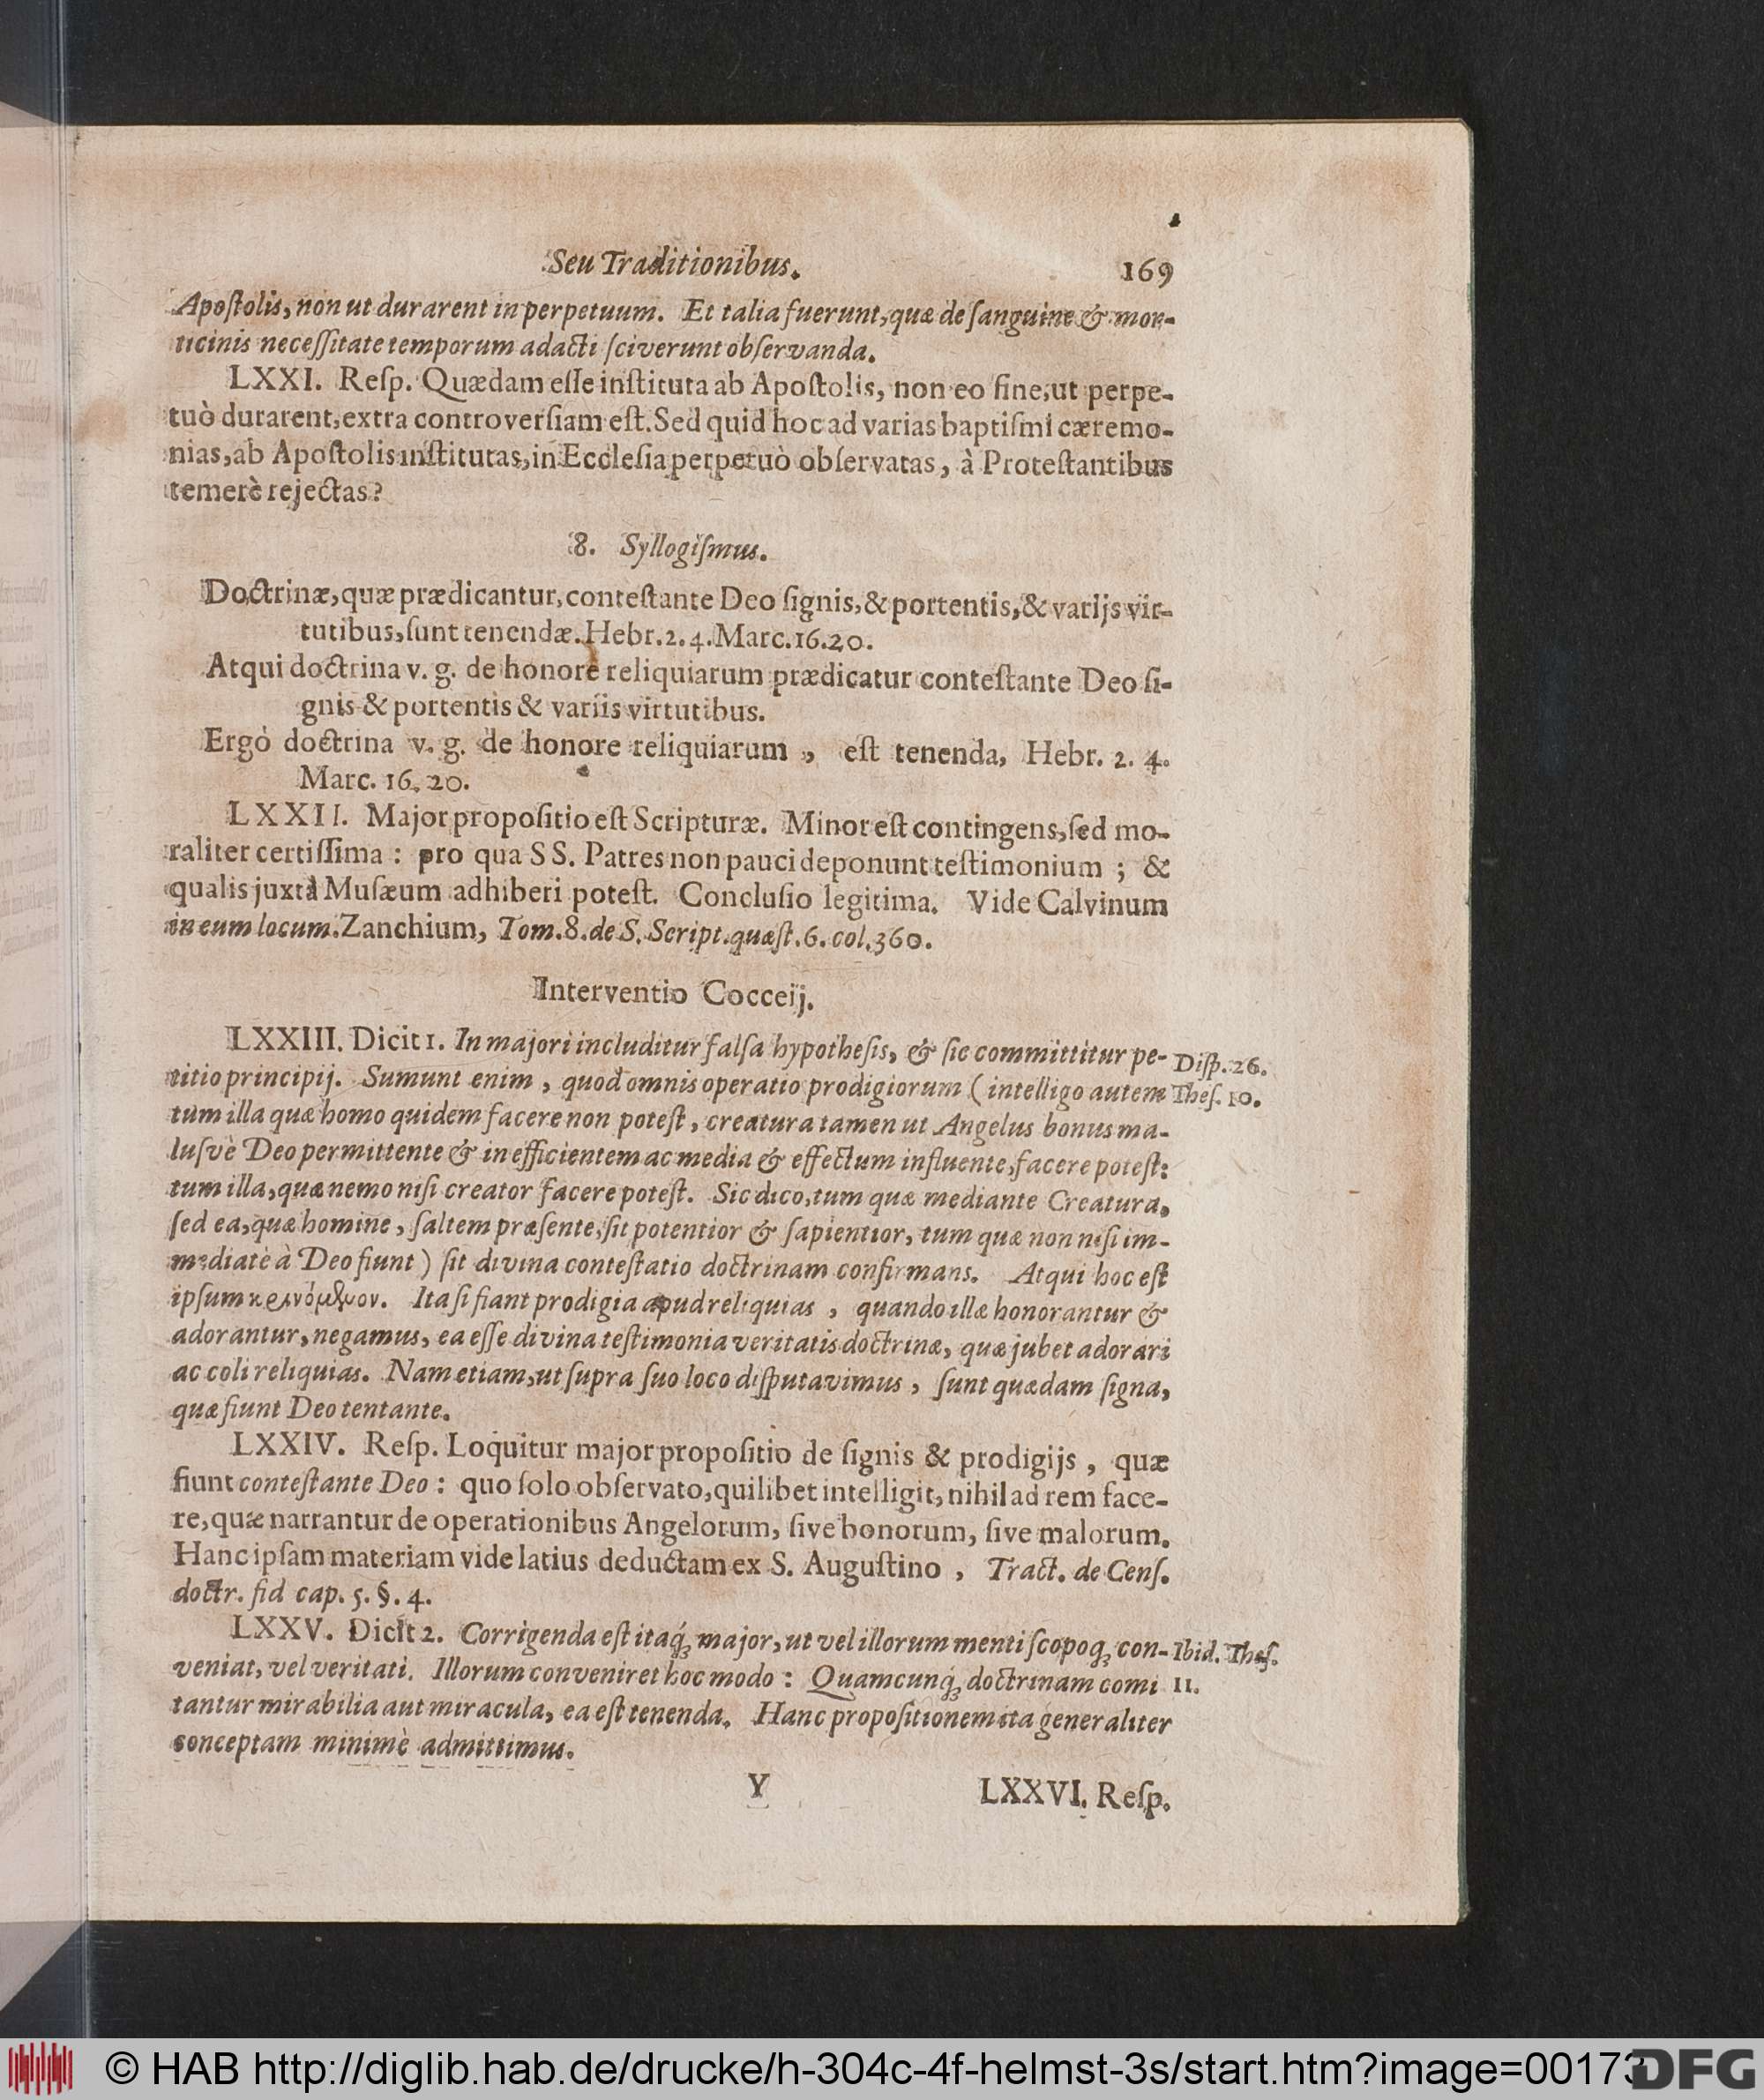 Seu Traditionibus. 169
Apoſtolis, non ut durarent in perpetuum. Et talia fuerunt, quæ de ſanguine & mor-
ticinis neceſſitate temporum adacti ſciverunt obſervanda.
LXXI. Reſp. Quædam eſſe inſtituta ab Apoſtolis, non eo fine, ut perpe-
tuò durarent, extra controverſiam eſt. Sed quid hoc ad varias baptiſmi cæremo-
nias, ab Apoſtolis inſtitutas, in Eccleſia perpetuò obſervatas, à Proteſtantibus
temerè rejectas?
8. Syllogiſmus.
Doctrinæ, quæ prædicantur, conteſtante Deo ſignis, & portentis, & varijs vir-
tutibus, ſunt tenendæ. Hebr. 2. 4. Marc. 16. 20.
Atqui doctrina v. g. de honore reliquiarum prædicatur conteſtante Deo ſi-
gnis & portentis & variis virtutibus.
Ergò doctrina v. g. de honore reliquiarum, eſt tenenda, Hebr. 2. 4.
Marc. 16. 20.
LXXII. Major propoſitio eſt Scripturæ. Minor eſt contingens, ſed mo-
raliter certiſſima: pro qua SS. Patres non pauci deponunt teſtimonium; &
qualis juxta Muſæum adhiberi poteſt. Concluſio legitima. Vide Calvinum
in eum locum. Zanchium, Tom. 8. de S. Script. quæſt. 6. col. 360.
Interventio Cocceij.
LXXIII. Dicit 1. In majori includitur falſa hypotheſis, & ſic committitur pe- Diſp. 26.
titio principij. Sumunt enim, quod omnis operatio prodigiorum (intelligo autem Theſ. 10.
tum illa quæ homo quidem facere non poteſt, creatura tamen ut Angelus bonus ma-
luſvè Deo permittente & in efficientem ac media & effectum influente, facere poteſt:
tum illa, quæ nemo niſi creator facere poteſt. Sic dico, tum quæ mediante Creatura,
ſed ea, quæ homine, ſaltem præſente, ſit potentior & ſapientior, tum quæ non niſi im-
mediatè à Deo fiunt) ſit divina conteſtatio doctrinam confirmans. Atqui hoc eſt
ipſum κρινόμενον. Ita ſi fiant prodigia apud reliquias, quando illæ honorantur &
adorantur, negamus, ea eſſe divina teſtimonia veritatis doctrinæ, quæ jubet adorari
ac coli reliquias. Nam etiam, ut ſupra ſuo loco diſputavimus, ſunt quædam ſigna,
quæ fiunt Deo tentante.
LXXIV. Reſp. Loquitur major propoſitio de ſignis & prodigijs, quæ
fiunt conteſtante Deo: quo ſolo obſervato, quilibet intelligit, nihil ad rem face-
re, quæ narrantur de operationibus Angelorum, ſive bonorum, ſive malorum.
Hanc ipſam materiam vide latius deductam ex S. Auguſtino, Tract. de Cenſ.
doctr. fid cap. 5. §. 4.
LXXV. Dicit 2. Corrigenda eſt itaq́; major, ut vel illorum menti ſcopoq; con- Ibid. Theſ.
veniat, vel veritati. Illorum conveniret hoc modo: Quamcunq́; doctrinam comi 11.
tantur mirabilia aut miracula, ea eſt tenenda. Hanc propoſitionem ita generaliter
conceptam minimè admittimus.
Y LXXVI. Reſp.
© HAB http://diglib.hab.de/drucke/h-304c-4f-helmst-3s/start.htm?image=00173
DFG